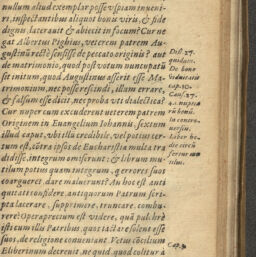 nullum aliud exemplar posse vspiam inueni-
ri, inspectantibus aliquot bonis viris, & fide
dignis, lacerauit & abiecit in focum? Cur ne
gat Albertus Pighius, veterem patrem Au-
gustinũ rectè sensisse de peccato originis? aut
de matrimonio, quod post votum nuncupatũ
sit initum, quod Augustinus asserit esse Ma-
trimonium, nec posse rescindi, illum errare,
& falsum esse dicit, nec proba vti dialectica?
Cur nuper cum excuderent veterem patrem
Origenem in Euangelium Iohannis, sextum
illud caput, vbi illũ credibile, vel potius cer-
tum est, cõtra ipsos de Eucharistia multa tra
didisse, integrum omiserunt: & librum mu-
tilum potius quam integrum, qui errores suos
coargueret, dare maluerunt? An hoc est anti
quitati confidere, antiquorum Patrum scri-
pta lacerare, supprimere, truncare, combu-
rere? Operæprecium est videre, quã pulchrè
istis cum illis Patribus, quos iactare solent esse
suos, de religione conueniat. Vetus cõcilium
Eliberinum decreuit, ne quid quod colitur à
Dist. 27.
quidam.
De bono
viduitatis
cap. 10.
Caus. 27.
q. 1. nuptia
rũ bonũ.
Cap. 3.